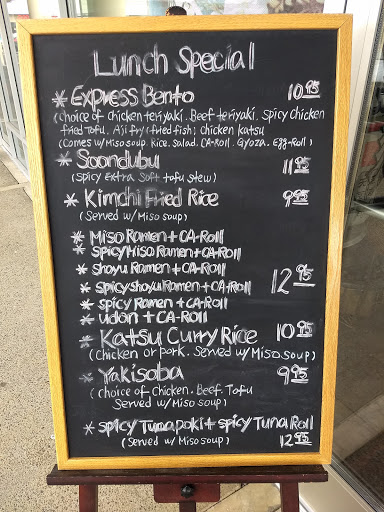 Lunch Special
* Express Bento 10.95
(Choice of chicken teriyaki. Beef teriyaki. Spicy chicken
fried tofu. Aji fry (fried fish), chicken katsu
(Comes w/Miso soup. Rice. Salad. CA-Roll. Gyoza. Egg-Roll)
* Soondubu 11.95
(Spicy Extra Soft tofu stew)
* Kimchi Fried Rice 9.95
(Served w/ Miso soup)
* Miso Ramen + CA-Roll
* Spicy Miso Ramen + CA-Roll
* Shoyu Ramen + CA-Roll
* Spicy Shoyu Ramen + CA-Roll 12.95
* Spicy Ramen + CA-Roll
* Udon + CA-Roll
* Katsu Curry Rice 10.95
(Chicken or pork. Served w/ Miso soup)
* Yakisoba 9.95
(choice of chicken. Beef. Tofu
Served w/ Miso soup)
* Spicy Tuna poki + Spicy Tuna Roll
(Served w/ Miso soup) 12.95